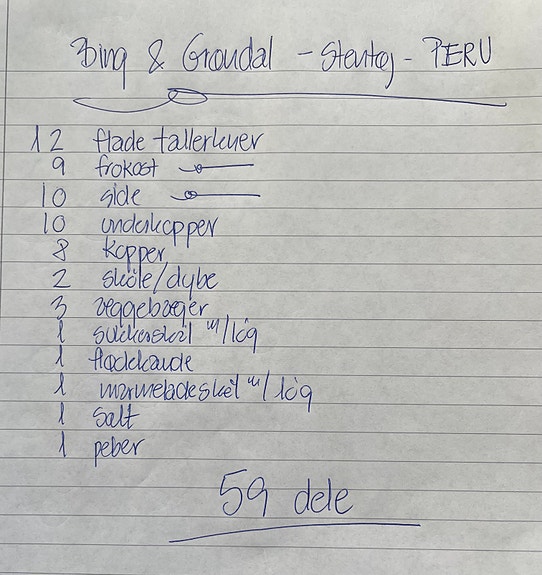 Bing & Grøndal - Stentøj - PERU
12 flade tallerkner
9 frokost
10 side
10 underkopper
8 kopper
2 skåle/dybe
3 æggebæger
1 sukkerskål m/låg
1 flødekande
1 marmeladeskål m/låg
1 salt
1 peber
59 dele